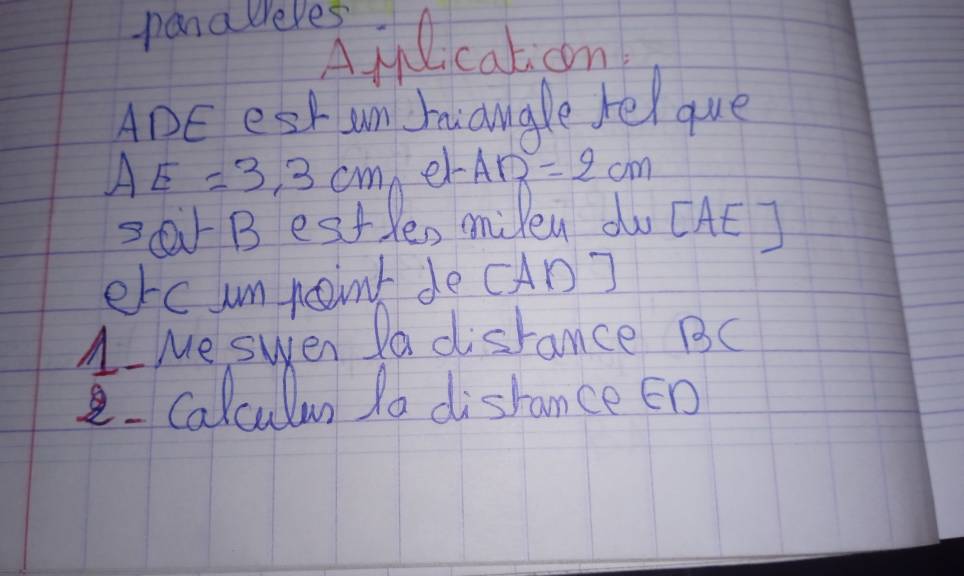 paralleles
Application:
ADE est un triangle tel que
AE = 3,3 cm, et AD = 2 cm
soit B est les milieu du [AE]
et C un point de [AD]
1_ Mesurer la distance BC
2_ Calculer la distance ED